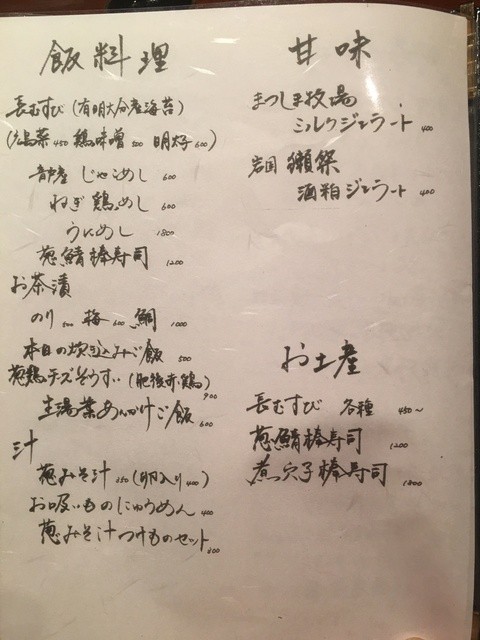 飯料理
長むすび（有明大分産海苔）
（広島菜450 鶏味噌500 明太子600）
音戸産 じゃこめし 600
ねぎ鶏めし 600
うにめし 1800
葱鯖棒寿司 1200
お茶漬
のり500 梅600 鯛1000
本日の炊き込みご飯 500
葱鶏チーズぞうすい（肥後赤鶏）900
生湯葉あんかけご飯 600
汁
葱みそ汁 350（卵入り400）
お吸いものにゅうめん 400
葱みそ汁つけものセット 600
甘味
まつしま牧場
ミルクジェラート 400
岩国 獺祭
酒粕ジェラート 400
お土産
長むすび 各種 450〜
葱鯖棒寿司 1200
煮穴子棒寿司 1800